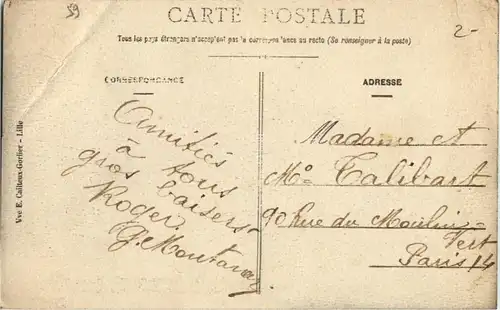 59
CARTE POSTALE
2-
Tous les pays étrangers n'acceptent pas la correspondance au recto (Se renseigner à la poste)
CORRESPONDANCE
ADRESSE
Vve E. Cailteux-Gerlier - Lille
Amitiés
à tous
gros baisers
Roger.
Madame et
Mº Talibart
90 Rue du Moulin
Vert
Paris 14